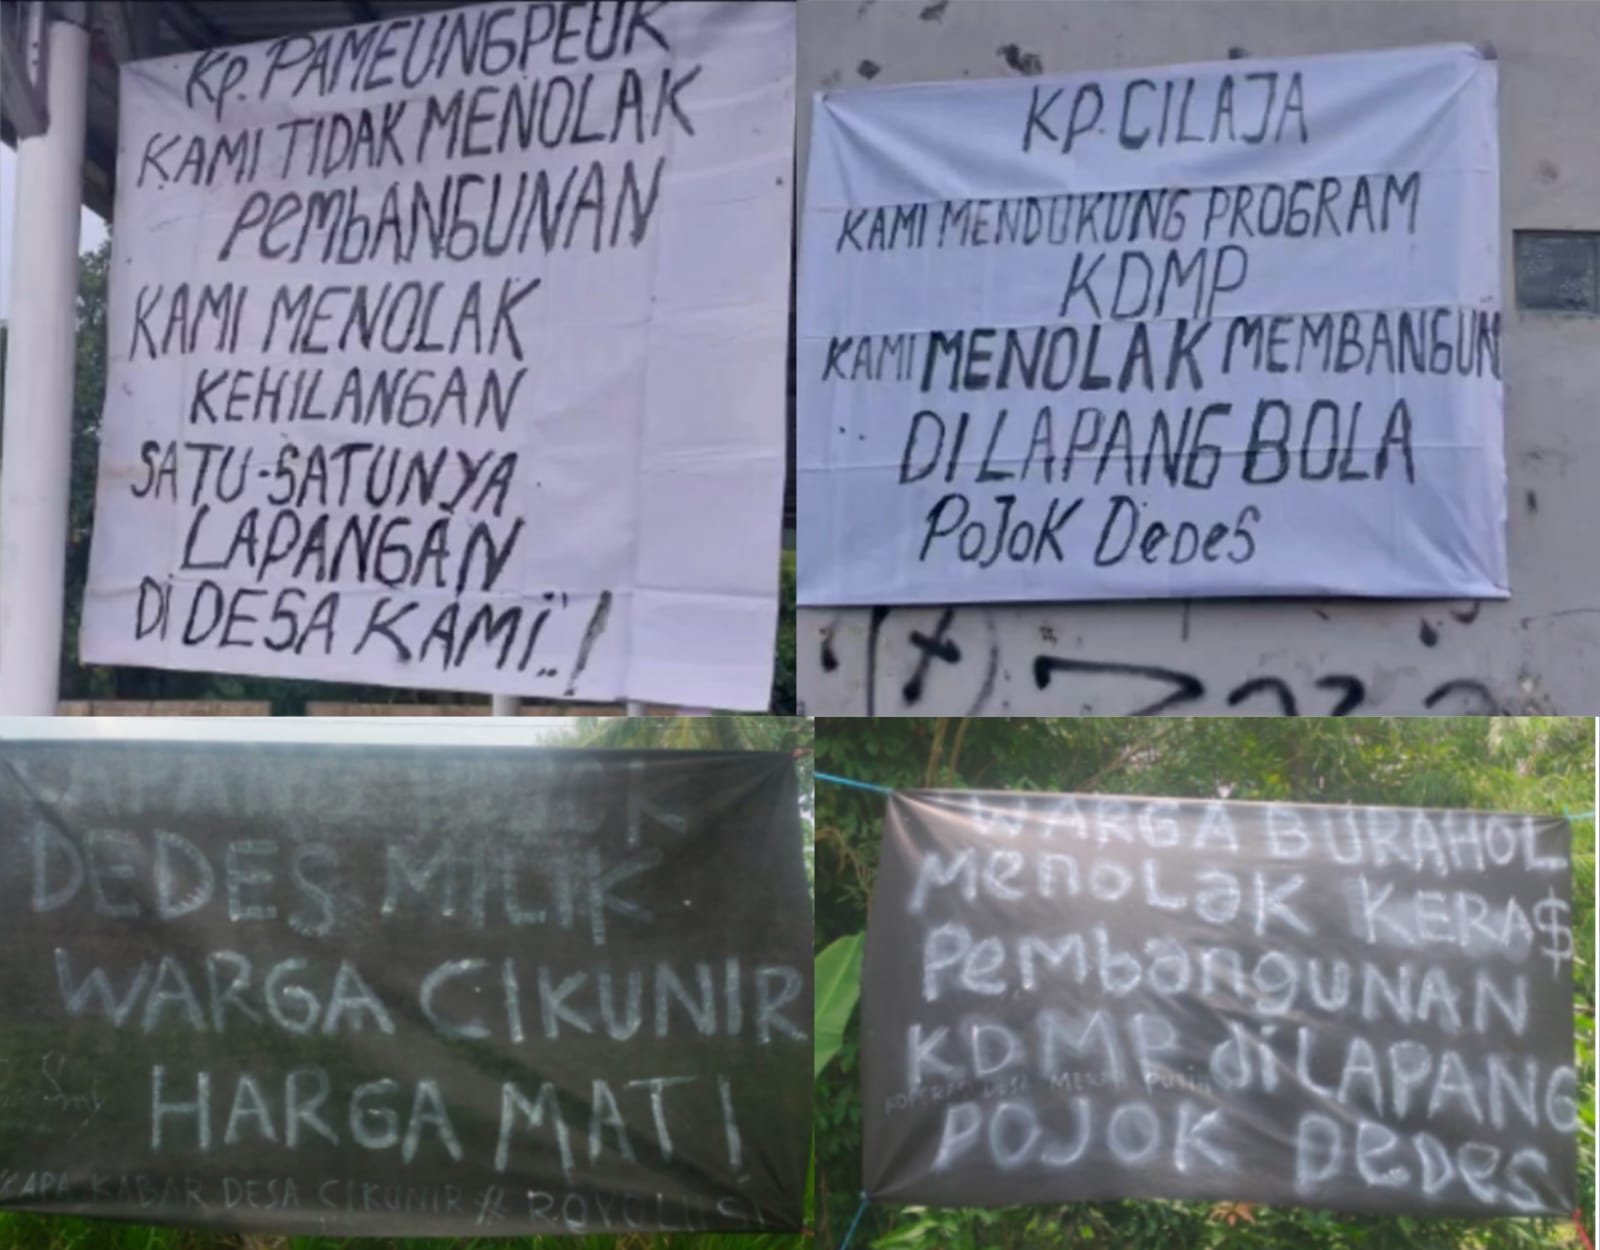 Kp. PAMEUNGPEUK
KAMI TIDAK MENOLAK
PEMBANGUNAN
KAMI MENOLAK
KEHILANGAN
SATU-SATUNYA
LAPANGAN
Di DESA KAMi..!
KP. CILAJA
KAMI MENDUKUNG PROGRAM
KDMP
KAMI MENOLAK MEMBANGUN
DI LAPANG BOLA
POJOK DeDeS
LAPANG POJOK
DEDES MILIK
WARGA CIKUNIR
HARGA MATI
APA KABAR DESA CIKUNIR #
WARGA BURAHOL
MenoLaK KERA$
PembangUNAN
KDMP di LAPANG
KOPERASI DESA MERAH PUTIH
POJOK DeDeS